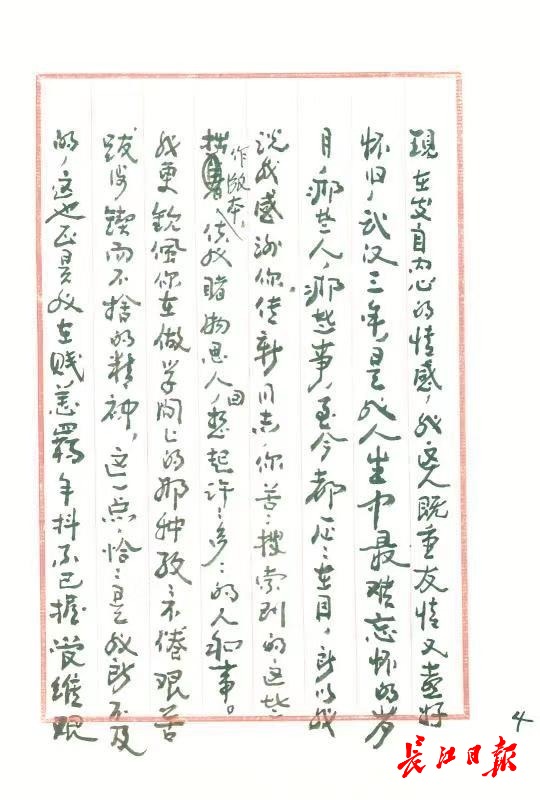 现在发自内心的情感，我这人既重友情又喜好
怀旧，武汉三年，是我人生中最难忘怀的岁
月，那些人，那些事，至今都一一在目，所以我
说我感谢你，传新同志，你苦苦搜索到的这些
拙著作版本，供我睹物思人，想起许许多多的人和事。
我更钦佩你在做学问上的那种孜孜不倦艰苦
跋涉锲而不舍的精神，这一点恰恰是我所不及
的，这也正是我在贱恙羁年抖不已握管维艰
4
长江日报